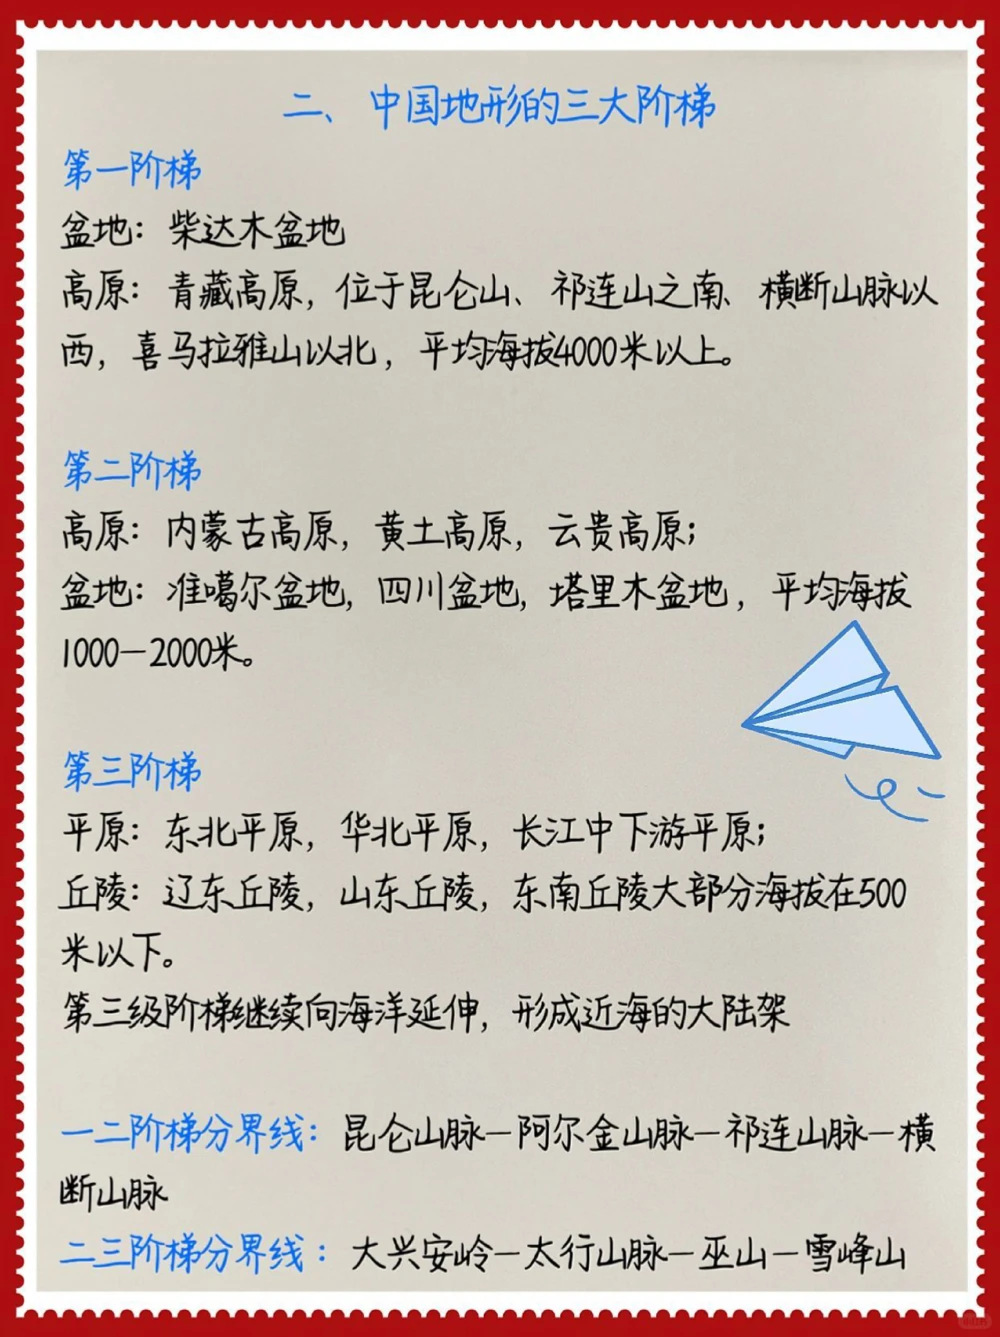 二、中国地形的三大阶梯
第一阶梯
盆地：柴达木盆地
高原：青藏高原，位于昆仑山、祁连山之南、横断山脉以
西，喜马拉雅山以北，平均海拔4000米以上。
第二阶梯
高原：内蒙古高原，黄土高原，云贵高原；
盆地：准噶尔盆地，四川盆地，塔里木盆地，平均海拔
1000—2000米。
第三阶梯
平原：东北平原，华北平原，长江中下游平原；
丘陵：辽东丘陵，山东丘陵，东南丘陵大部分海拔在500
米以下。
第三级阶梯继续向海洋延伸，形成近海的大陆架
一二阶梯分界线：昆仑山脉—阿尔金山脉—祁连山脉—横
断山脉
二三阶梯分界线：大兴安岭—太行山脉—巫山—雪峰山